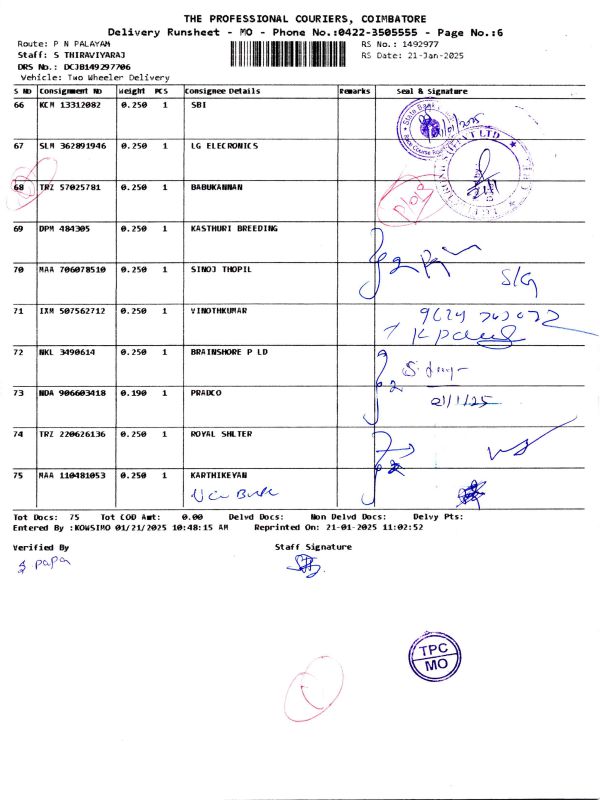 THE PROFESSIONAL COURIERS, COIMBATORE
Delivery Runsheet - MO - Phone No.:0422-3505555 - Page No.:6
Route: P N PALAYAM
RS No.: 1492977
Staff: S THIRAVIYARAJ
RS Date: 21-Jan-2025
DRS No.: DCJB149297706
Vehicle: Two Wheeler Delivery
S No Consignment No Weight PCS Consignee Details Remarks Seal & Signature
66 KCM 13312082 0.250 1 SBI
67 SLM 362891946 0.250 1 LG ELECRONICS
68 TRZ 57025781 0.250 1 BABUKANNAN
69 DPM 484305 0.250 1 KASTHURI BREEDING
70 MAA 706078510 0.250 1 SINOJ THOPIL
71 IXM 507562712 0.250 1 VINOTHKUMAR
72 NKL 3490614 0.250 1 BRAINSHORE P LD
73 NDA 906603418 0.190 1 PRADCO
21/1/25
74 TRZ 220626136 0.250 1 ROYAL SHLTER
75 MAA 110481053 0.250 1 KARTHIKEYAN
Tot Docs: 75 Tot COD Amt: 0.00 Delvd Docs: Non Delvd Docs: Delvy Pts:
Entered By :KOWSIMO 01/21/2025 10:48:15 AM Reprinted On: 21-01-2025 11:02:52
Verified By Staff Signature
papa
TPC
MO